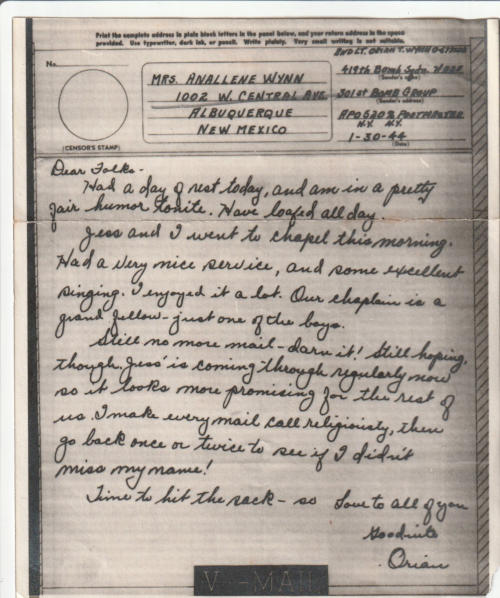 Print the complete address in plain block letters in the panel below, and your return address in the space
provided. Use typewriter, dark ink, or pencil. Write plainly. Very small writing is not suitable.
No.
(CENSOR'S STAMP)
MRS. ANALLENE WYNN
1002 W. CENTRAL AVE.
ALBUQUERQUE
NEW MEXICO
2ND LT. ORIAN T. WYNN
(Sender's name)
419th Bomb Sqdn.
301st BOMB GROUP
(Sender's address)
APO 520 % POSTMASTER
N.Y. N.Y.
1-30-44
(Date)
Dear Folks-
Had a day of rest today, and am in a pretty
fair humor tonite. Have loafed all day.
Jess and I went to chapel this morning.
Had a very nice service, and some excellent
singing. I enjoyed it a lot. Our chaplain is a
grand fellow - just one of the boys.
Still no more mail - darn it! Still hoping,
though. Jess' is coming through regularly now
so it looks more promising for the rest of
us. I make every mail call religiously, then
go back once or twice to see if I didn't
miss my name!
Time to hit the sack - so Love to all of you
Goodnite
Orian
V-MAIL